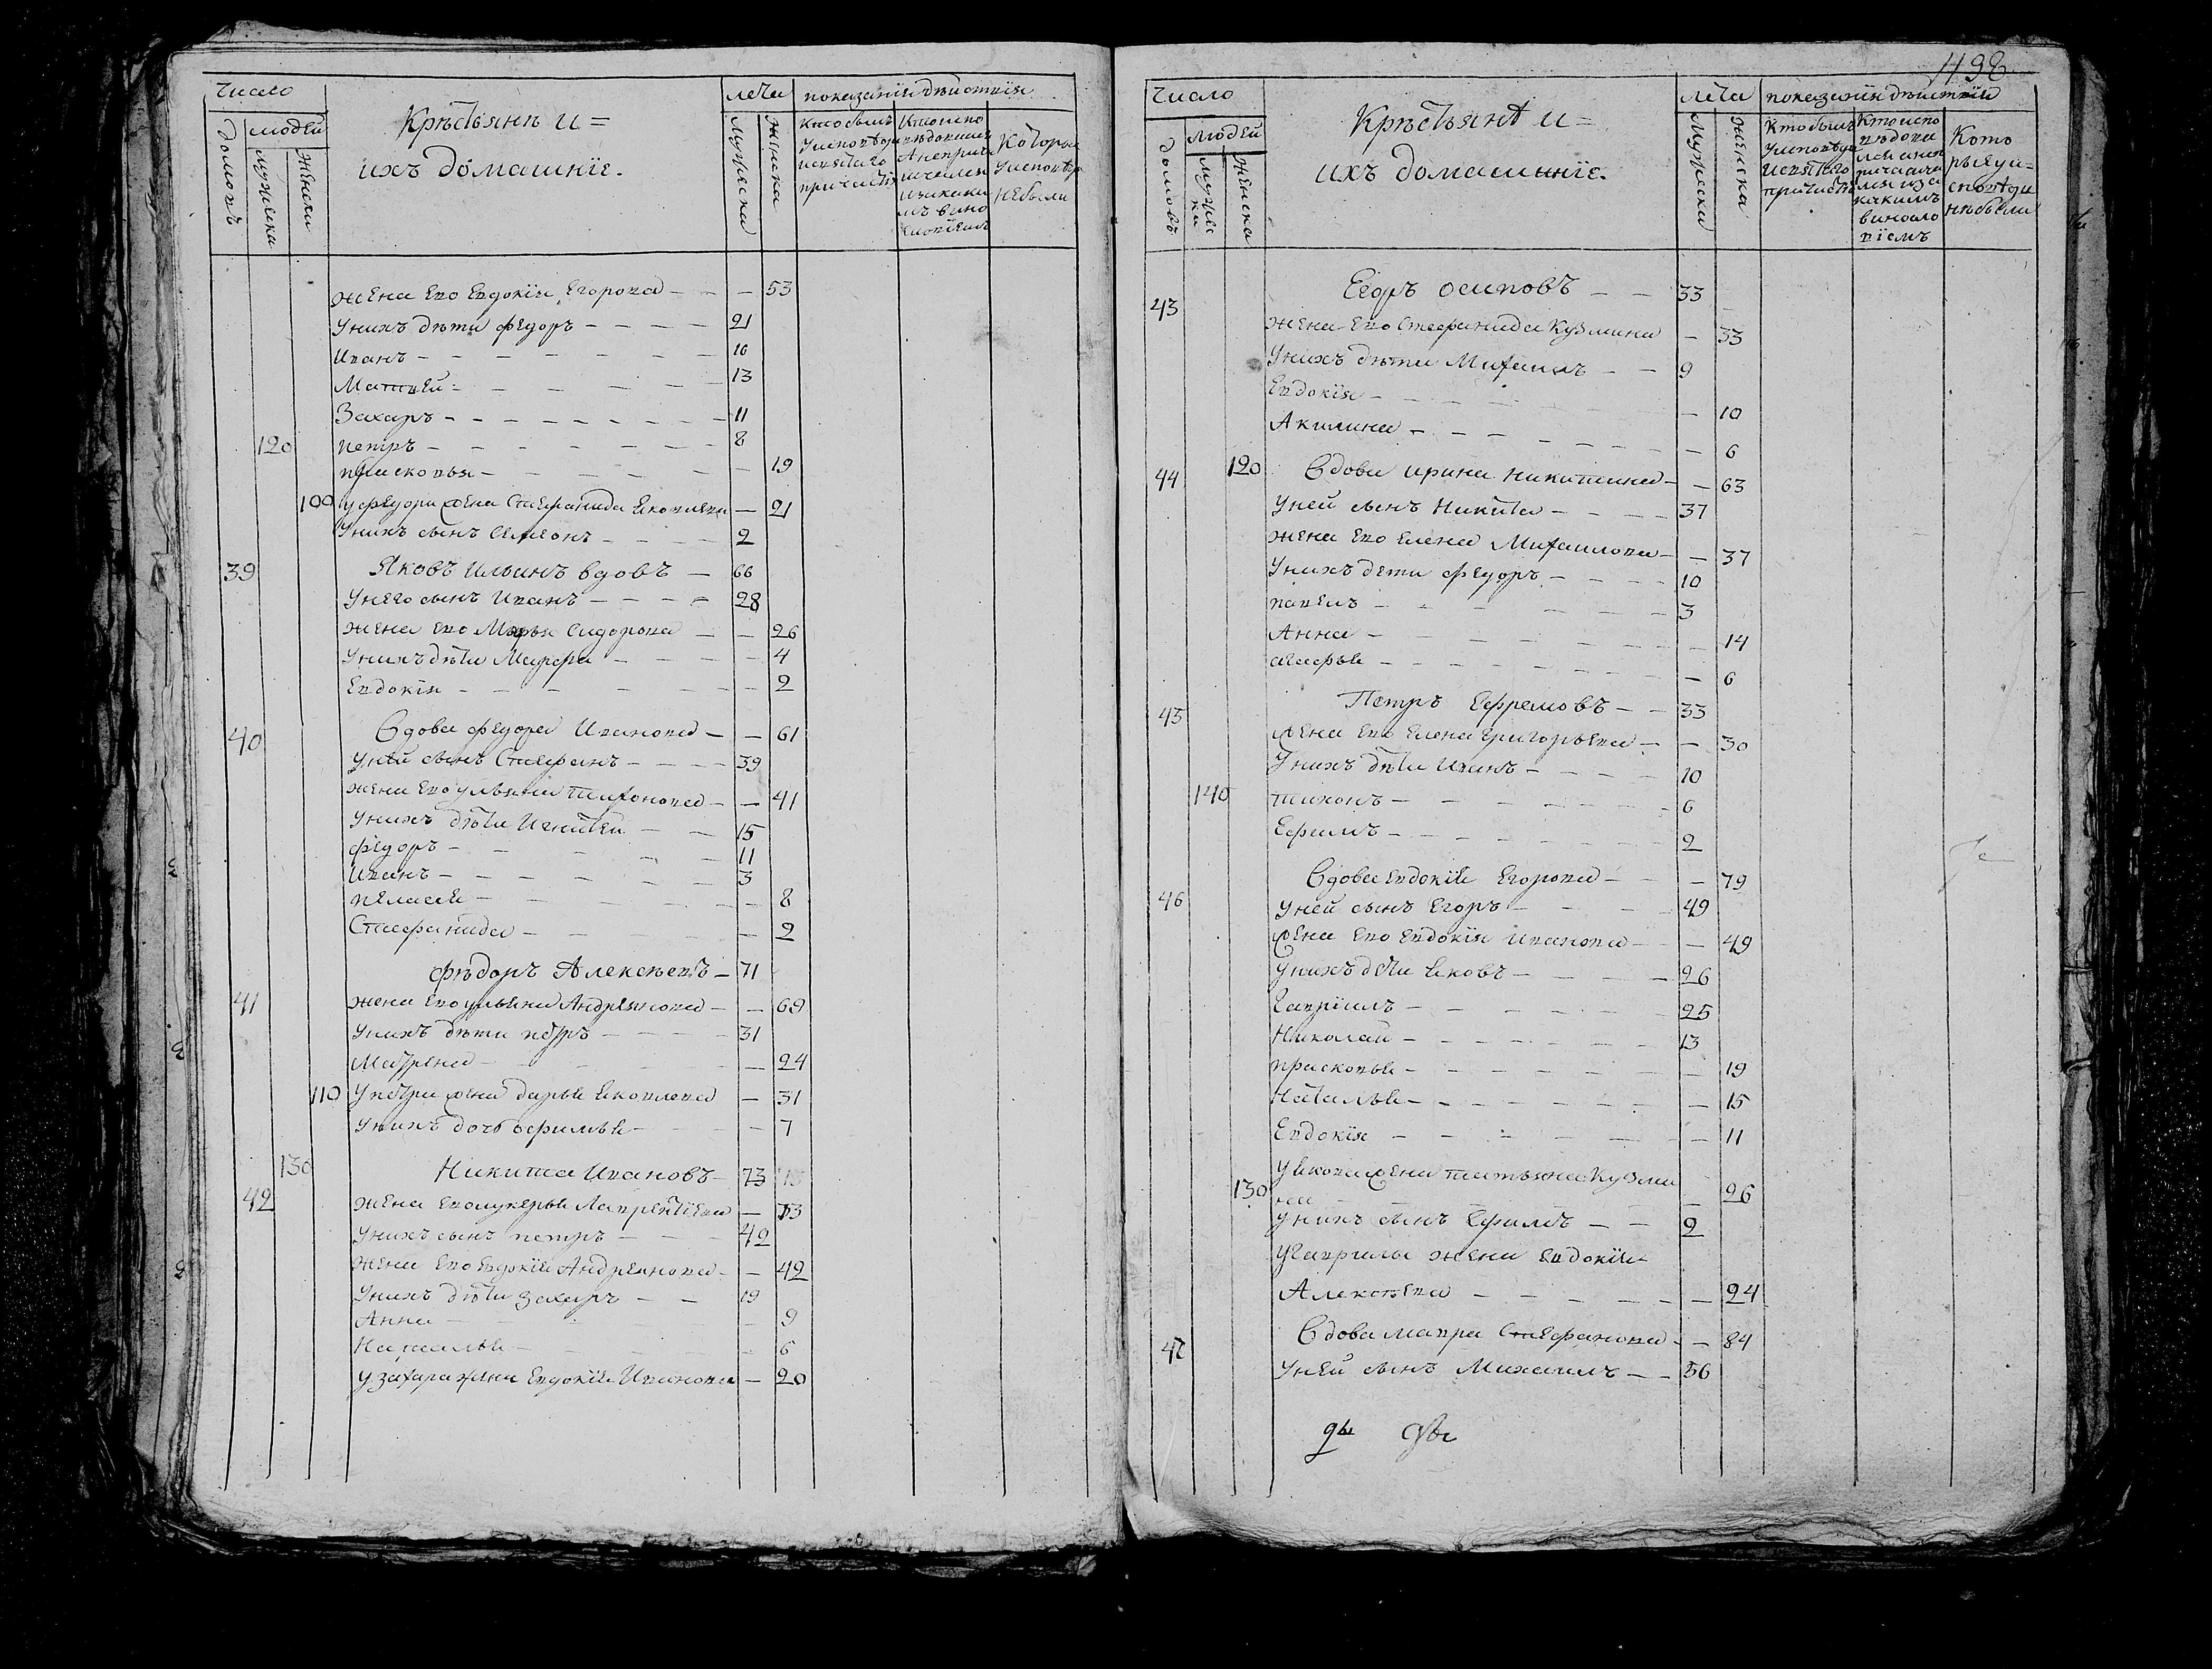 Число
людей
домовъ
мужеска
женска
Крѣстьянѣ и=
ихъ домашніе.
лета
мужеска
женска
показаніи дѣиствія
Кто былъ
Которыи
жена ево Евдокія Егорова — — — 53
Унихъ дѣти Федоръ — — — — 21
Иванъ — — — — — — — 16
Матвей — — — — — 13
Захаръ — — — — — — — 11
120 петръ — — — — — — 8
прасковья — — — — — — 19
100 у федора жена Стефанида Яковлева — 21
Унихъ сынъ Семеонъ — — — — 2
39 Яковъ Ильинъ вдовъ — 66
Унего сынъ Иванъ — — — — 28
жена ево Марья Сидорова — — 26
Унихъ дѣти Марфа — — — — 4
Евдокія — — — — — — — 2
40 Вдова федора Иванова — — 61
Уней сынъ Стефанъ — — — — 39
жена ево ульяна Тихонова — — 41
Унихъ дѣти Игнатей — — 15
федоръ — — — — — — 11
Иванъ — — — — — — 3
пелагея — — — — — — 8
Стефанида — — — — — 2
фѣдоръ Алексѣевъ — 71
41 жена ево ульяна Андреянова — — 69
Унихъ дѣти петръ — — — — 31
Матрена — — — — — 24
110 Упетра жена дарья Яковлева — 31
Унихъ дочь Ефимья — — — — 7
130 Никита Ивановъ — 73
42 жена ево лукерья Лаврентіева — 73
Унихъ сынъ петръ — — — 42
жена ево Евдокія Андреянова — — 42
Унихъ дѣти Захаръ — — 19
Анна — — — — — 9
Наталья — — — — — 6
у захара жена Евдокія Иванова — 20
498
Число
людей
домовъ
мужеска
женска
Крѣстьянѣ и=
ихъ домашніе.
лета
мужеска
женска
показаніи дѣиствіи
Кто былъ
Кото
рые уи=
споведи
нѣ были
43 Егоръ осиповъ — — 33
жена Ево Стефанида Кузмина — 33
Унихъ дѣти Михаилъ — — 9
Евдокія — — — — — — 10
Акилина — — — — — — 6
44 120 Вдова ирина никитина — — 63
Уней сынъ Никита — — — — 37
жена ево Елена Михаилова — — 37
Унихъ дети федоръ — — — — 10
павелъ — — — — — — 3
Анна — — — — — — — 14
агафья — — — — — — — 6
45 Петръ Ефремовъ — — 33
жена ево Елена григорьева — — 30
Унихъ дѣти Иванъ — — — — 10
140 тихонъ — — — — — — 6
Ефимъ — — — — — — 2
Вдова Евдокія Егорова — — 79
46 Уней сынъ Егоръ — — — — 49
жена ево Евдокія иванова — — 49
унихъ дѣти Яковъ — — — — 26
Гавріилъ — — — — — — 25
Николай — — — — — — 13
прасковья — — — — — — 19
Наталья — — — — — — 15
Евдокія — — — — — — 11
У Якова жена татьяна Кузми
130 на — — — — — 26
Унихъ сынъ Ефимъ — — 2
У Гаврилы жена Евдокія
Алексѣева — — — — — — 24
47 Вдова мавра Стефанова — — 84
Уней сынъ Михаилъ — — 56